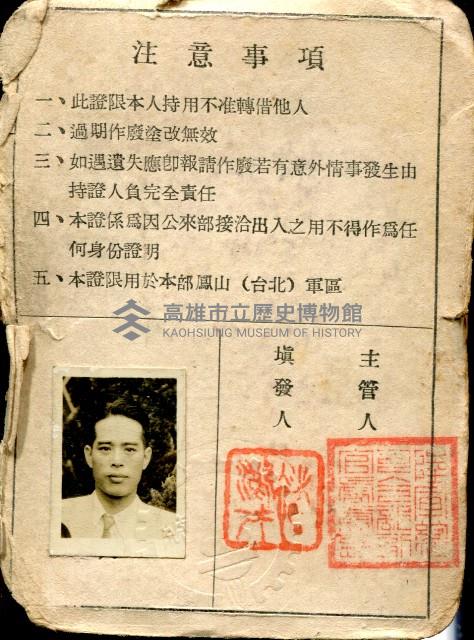 注意事項
一、此證限本人持用不准轉借他人
二、過期作廢塗改無效
三、如遇遺失應卽報請作廢若有意外情事發生由
持證人負完全責任
四、本證係爲因公來部接洽出入之用不得作爲任
何身份證明
五、本證限用於本部鳳山（台北）軍區
高雄市立歷史博物館
KAOHSIUNG MUSEUM OF HISTORY
主管人
塡發人